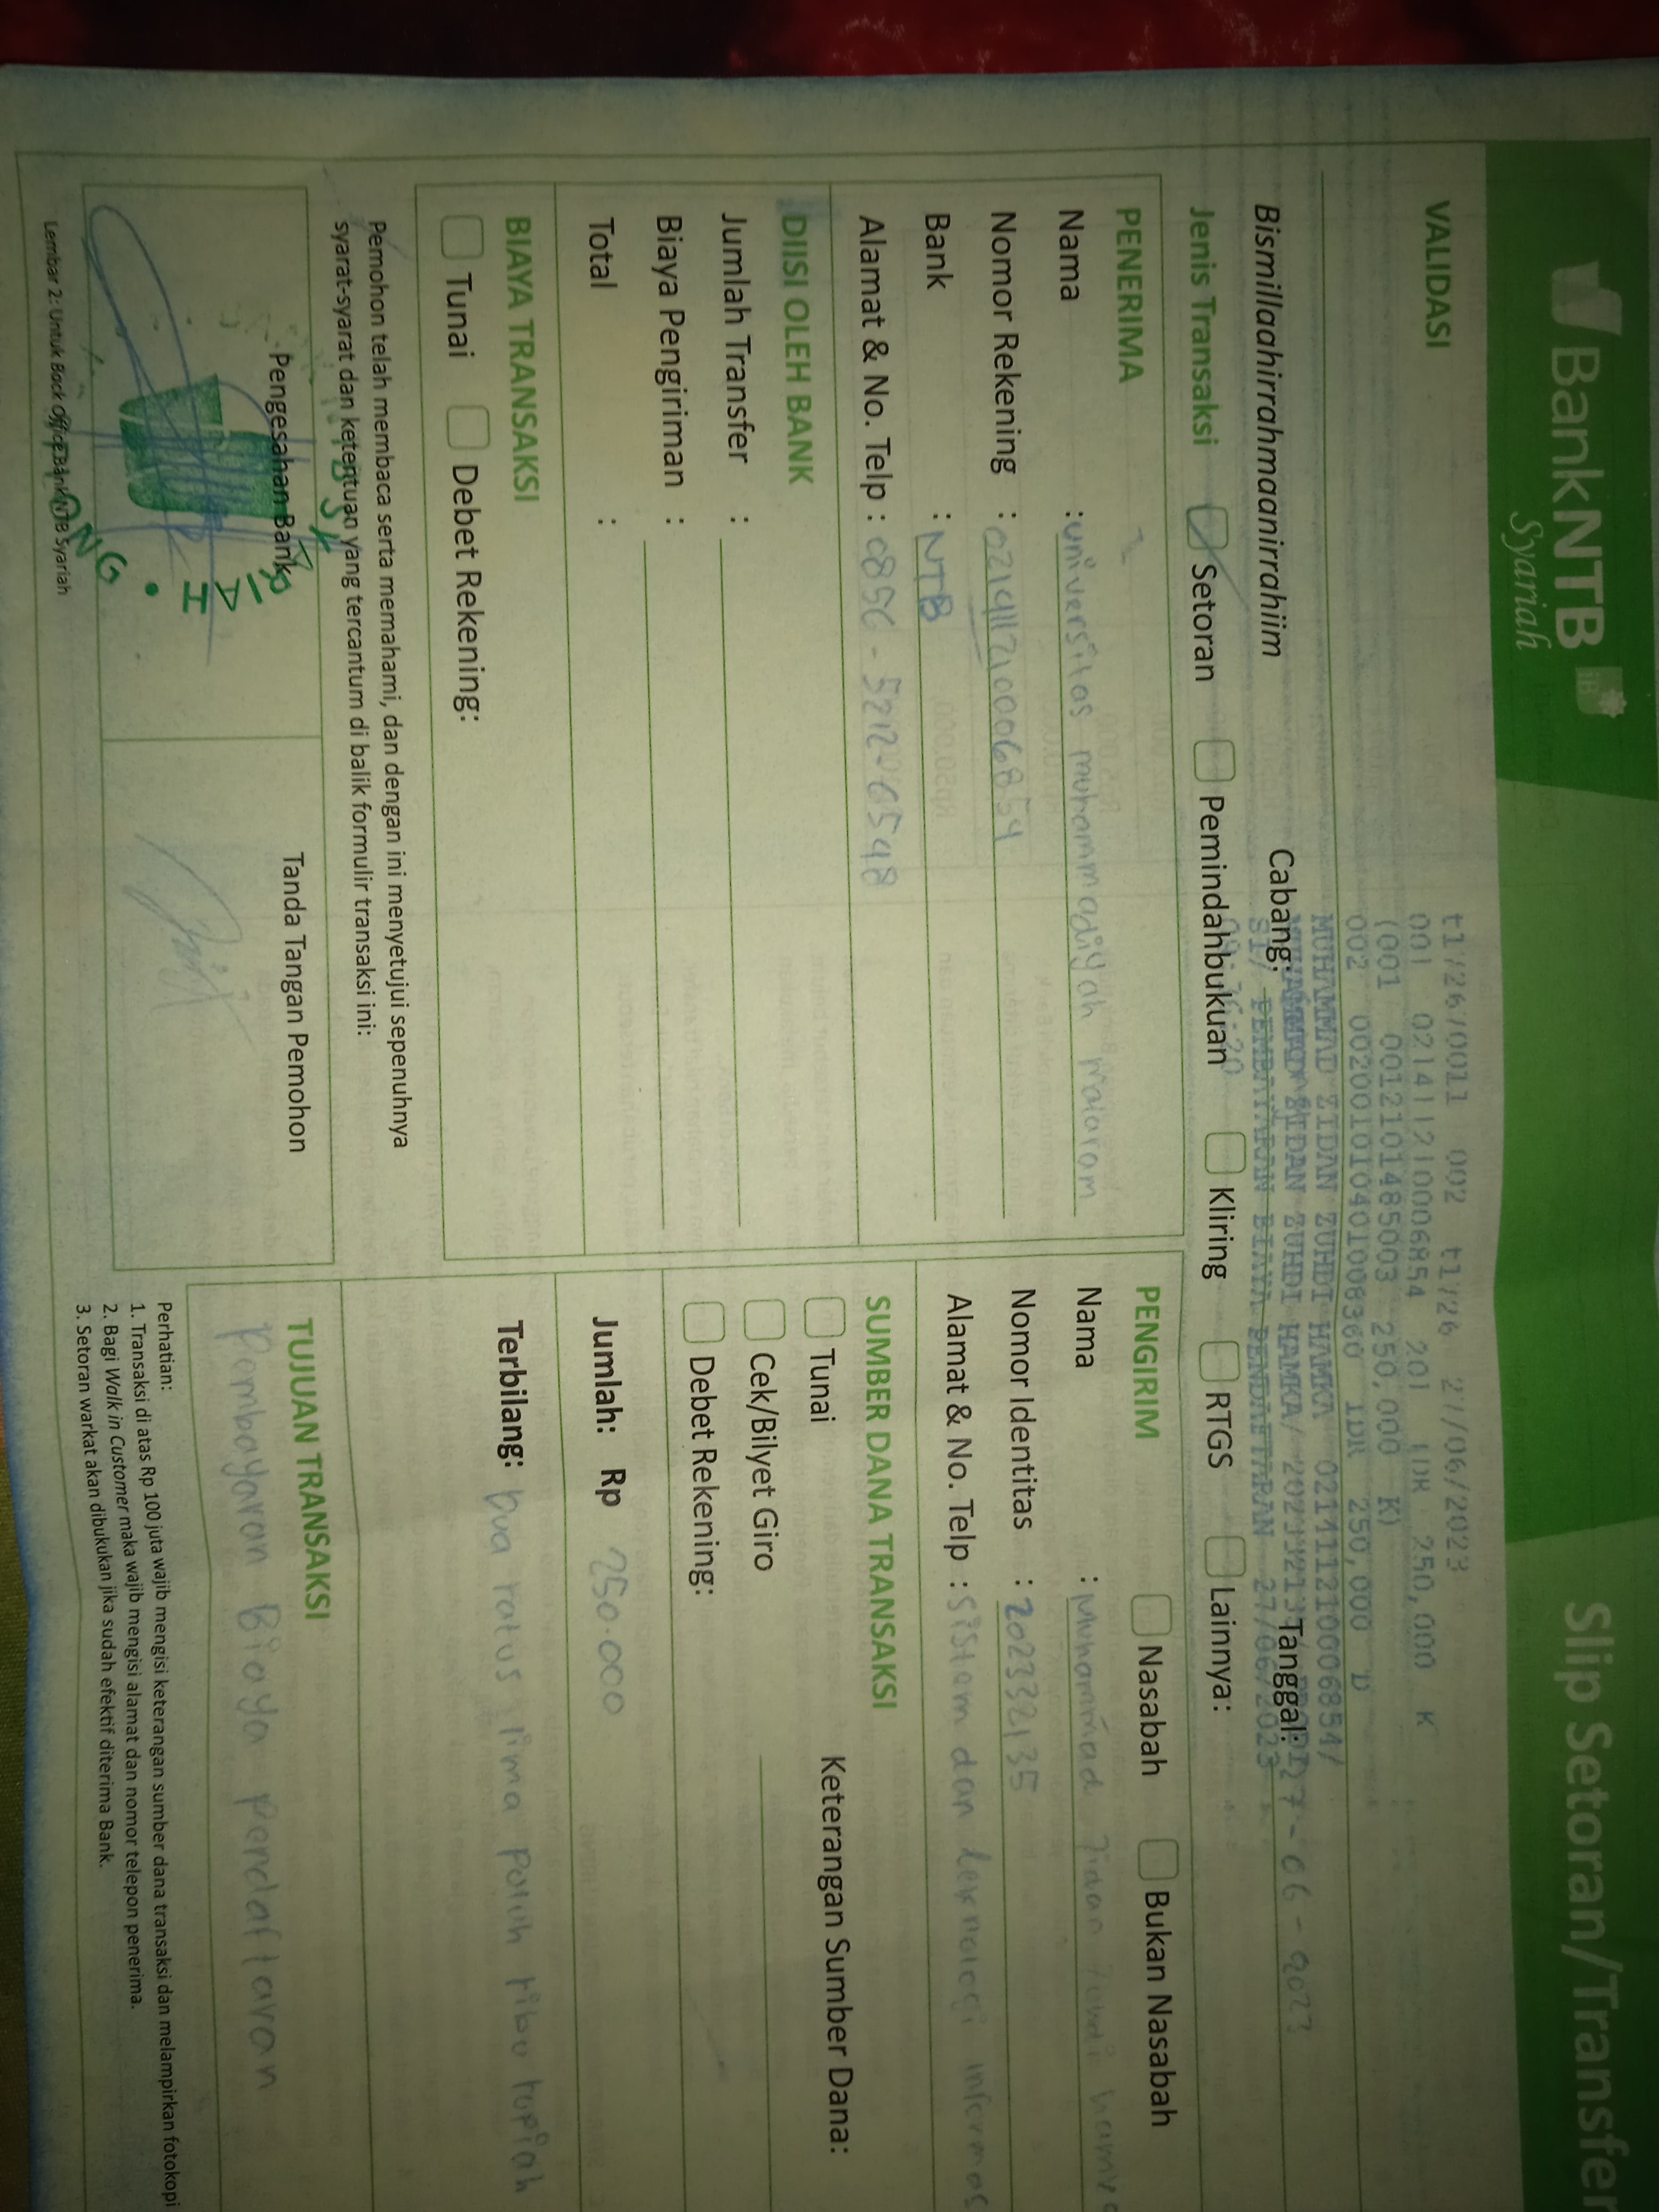 BankNTB iB
Syariah
Slip Setoran/Transfer
VALIDASI
t1/26/0011 002 t1/26 27/06/2023
001 0214112100006854 201 IDR 250,000 K
(001 0012101485003 250,000 K)
002 0020010104010008360 IDR 250,000 D
MUHAMMAD ZIDAN ZUHDI HAMKA 0214112100006854/
ZIDAN ZUHDI HAMKA/
PEMBAYARAN BIAYA PENDAFTARAN 27/06/2023
Bismillaahirrahmaanirrahiim
Cabang:
Tanggal: 27-06-2023
Jenis Transaksi
Setoran
Pemindahbukuan
Kliring
RTGS
Lainnya:
PENERIMA
Nama : universitas muhammadiyah mataram
Nomor Rekening : 0214112100006854
Bank : NTB
Alamat & No. Telp :
DIISI OLEH BANK
Jumlah Transfer :
Biaya Pengiriman :
Total :
BIAYA TRANSAKSI
Tunai
Debet Rekening:
Pemohon telah membaca serta memahami, dan dengan ini menyetujui sepenuhnya
syarat-syarat dan ketentuan yang tercantum di balik formulir transaksi ini:
Pengesahan Bank
Tanda Tangan Pemohon
Lembar 2: Untuk Back Office Bank NTB Syariah
PENGIRIM
Nasabah
Bukan Nasabah
Nama : Muhammad zidan zuhdi hamka
Nomor Identitas : 202332135
Alamat & No. Telp : sistem dan teknologi informas
SUMBER DANA TRANSAKSI
Tunai
Keterangan Sumber Dana:
Cek/Bilyet Giro
Debet Rekening:
Jumlah: Rp 250.000
Terbilang: Dua ratus lima puluh ribu rupiah
TUJUAN TRANSAKSI
Pembayaran Biaya pendaftaran
Perhatian:
1. Transaksi di atas Rp 100 juta wajib mengisi keterangan sumber dana transaksi dan melampirkan fotokopi
2. Bagi Walk in Customer maka wajib mengisi alamat dan nomor telepon penerima.
3. Setoran warkat akan dibukukan jika sudah efektif diterima Bank.